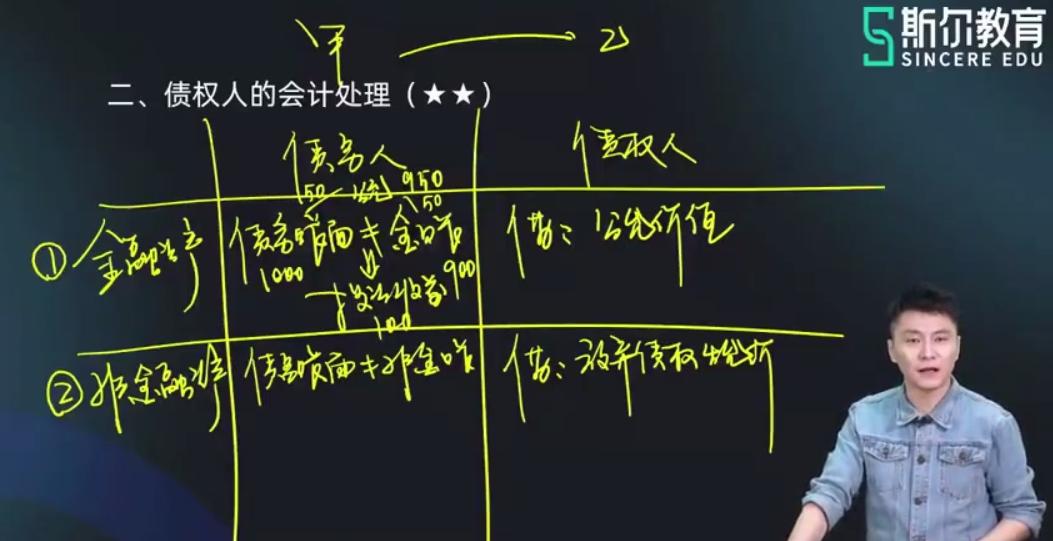 甲 — 乙
斯尔教育
SINCERE EDU
二、债权人的会计处理（★★）
债务人
债权人
50 公允 950
50
① 金融资产
债务账面 ≠ 金账
1000
900
投资收益
100
借：公允价值
② 非金融资产
债务账面 ≠ 非金账
借：放弃债权公允价